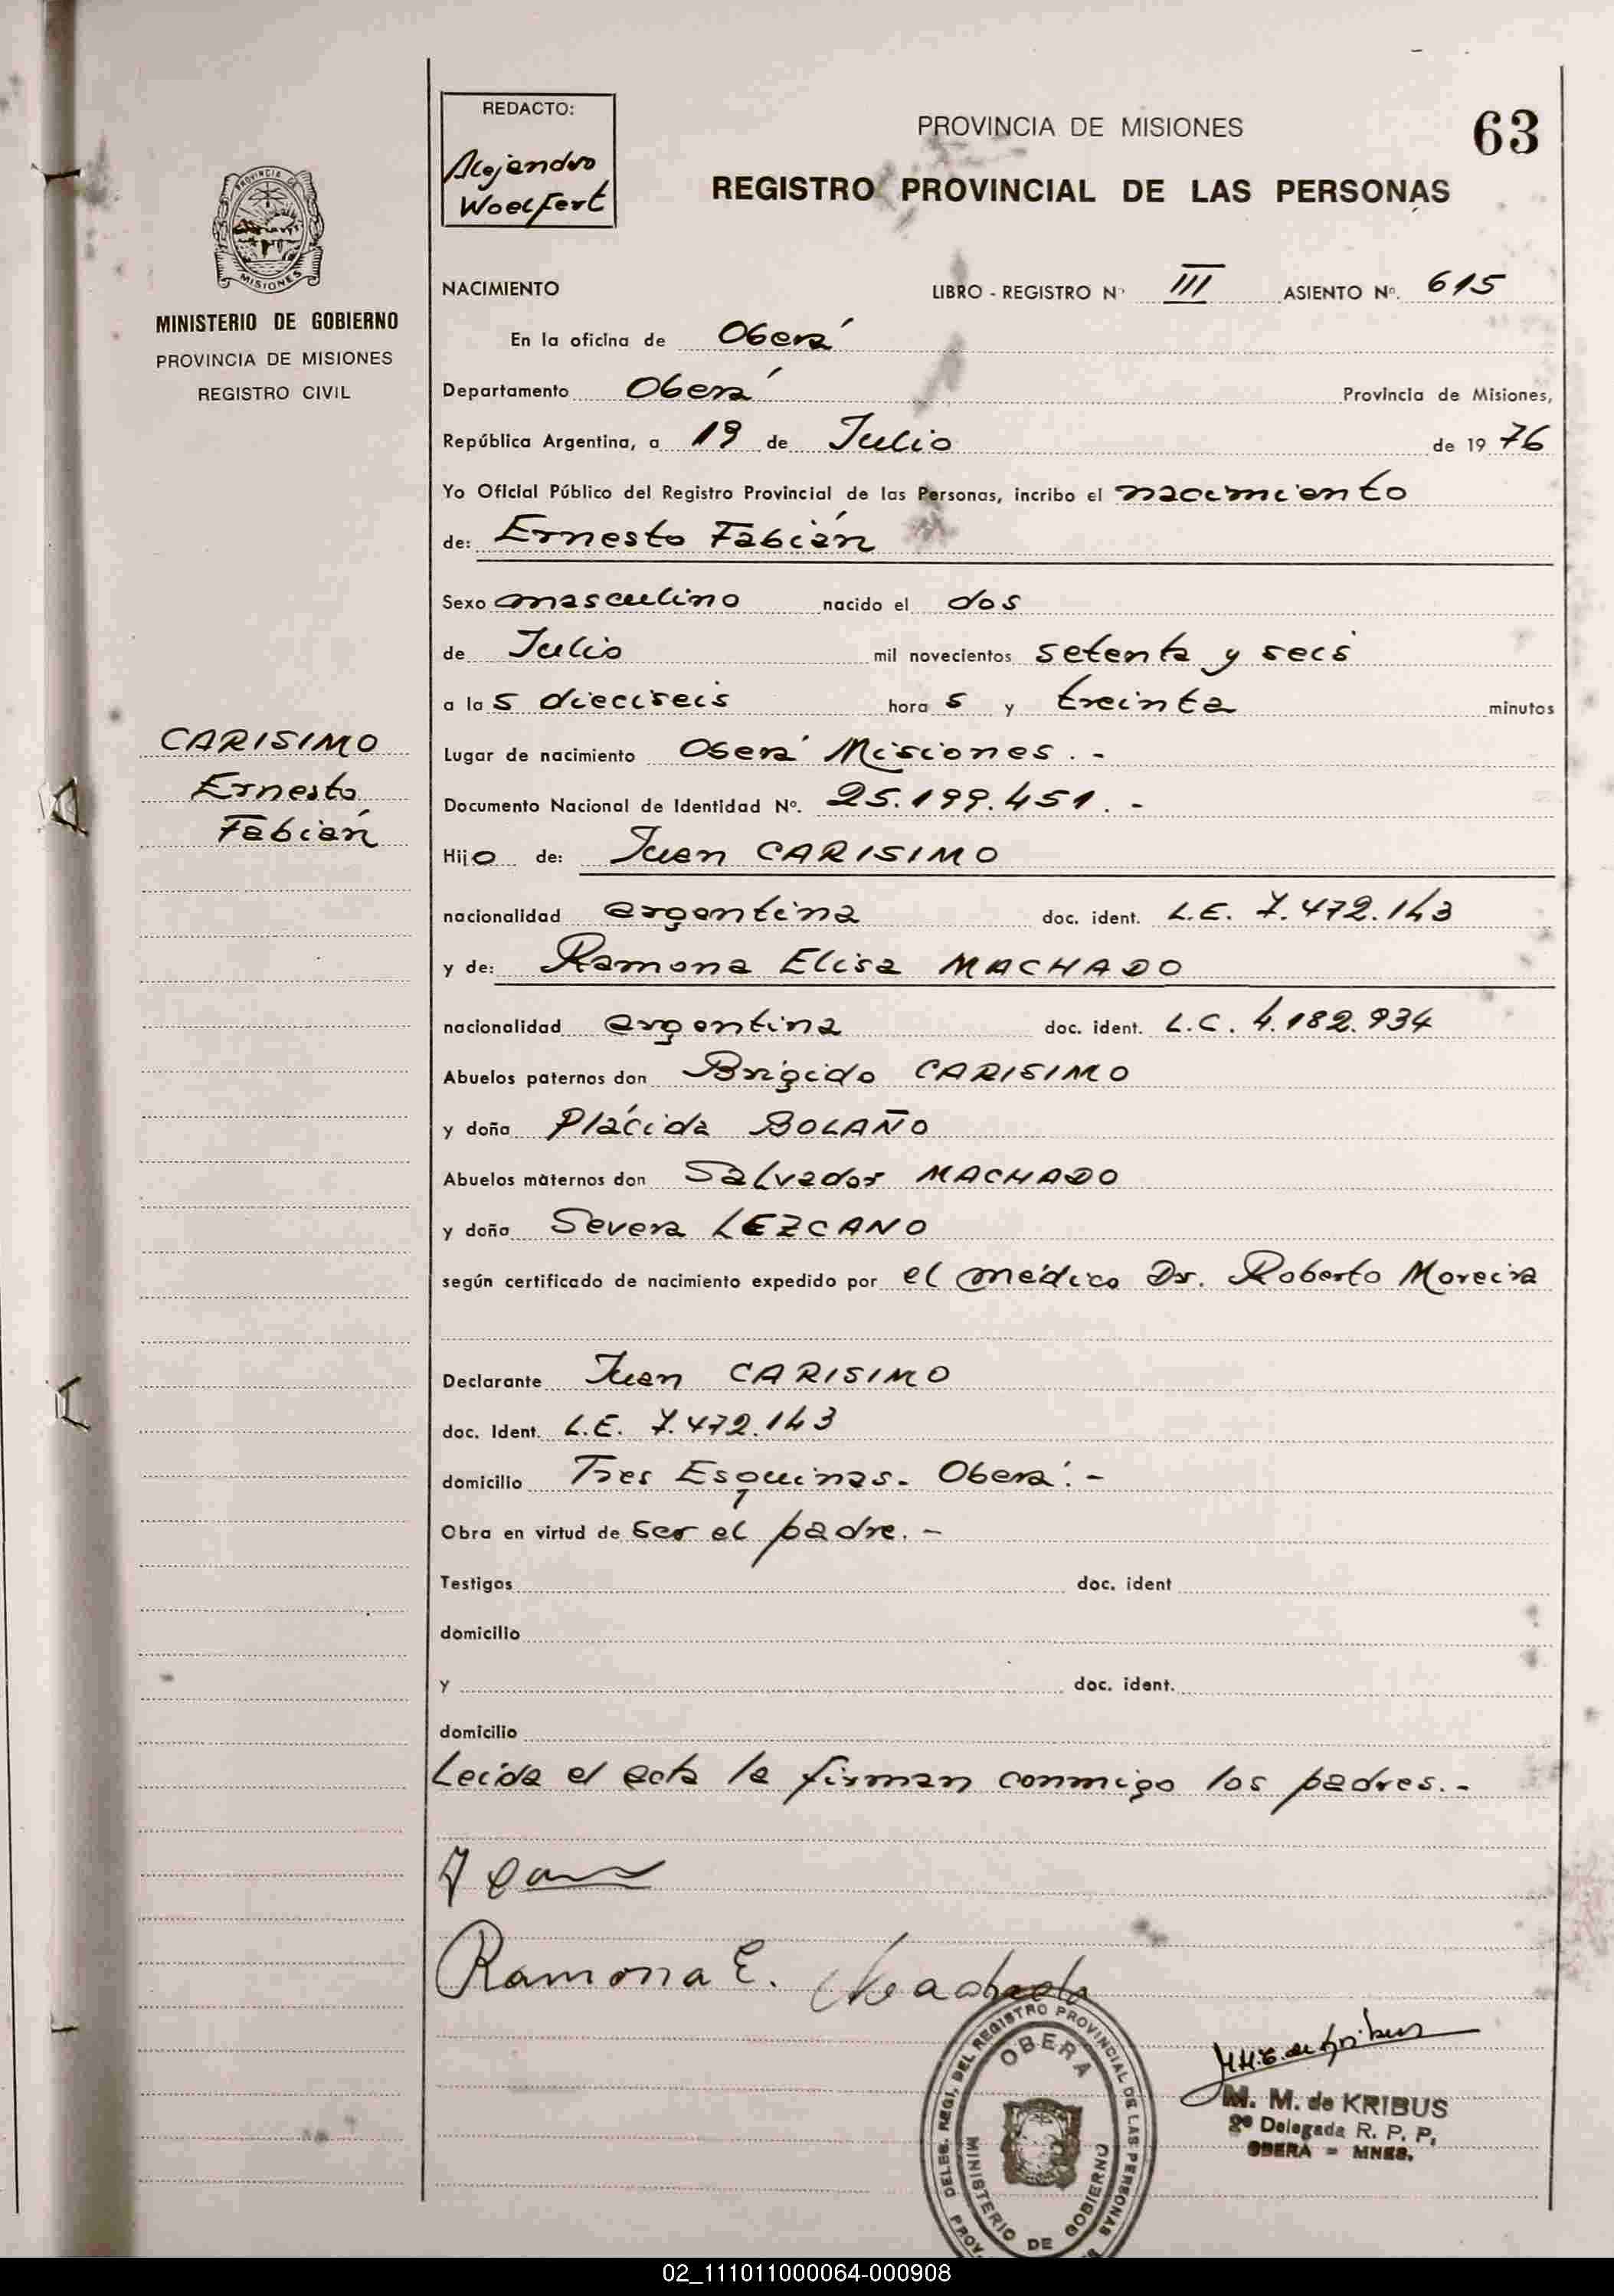 REDACTO:
Alejandro
Woelfert
PROVINCIA DE MISIONES
63
REGISTRO PROVINCIAL DE LAS PERSONAS
PROVINCIA DE
MISIONES
MINISTERIO DE GOBIERNO
PROVINCIA DE MISIONES
REGISTRO CIVIL
NACIMIENTO LIBRO - REGISTRO Nº III ASIENTO Nº. 615
En la oficina de Oberá
Departamento Oberá Provincia de Misiones,
República Argentina, a 19 de Julio de 19 76
Yo Oficial Público del Registro Provincial de las Personas, incribo el nacimiento
de: Ernesto Fabián
Sexo masculino nacido el dos
de Julio mil novecientos setenta y seis
a las dieciseis horas y treinta minutos
CARISIMO
Ernesto
Fabián
Lugar de nacimiento Oberá Misiones. -
Documento Nacional de Identidad Nº. 25.199.451. -
Hijo de: Juan CARISIMO
nacionalidad argentina doc. ident. L.E. 7.472.143
y de: Ramona Elisa MACHADO
nacionalidad argentina doc. ident. L.C. 4.182.934
Abuelos paternos don Brigido CARISIMO
y doña Plácida BOLAÑO
Abuelos maternos don Salvador MACHADO
y doña Severa LEZCANO
según certificado de nacimiento expedido por el médico Dr. Roberto Moreira
Declarante Juan CARISIMO
doc. Ident. L.E. 7.472.143
domicilio Tres Esquinas. Oberá. -
Obra en virtud de ser el padre. -
Testigos doc. ident
domicilio
y doc. ident.
domicilio
Leída el acta la firman conmigo los padres. -
Ramona E. Machado
DELEG. REGI. DEL REGISTRO PROVINCIAL DE LAS PERSONAS
OBERA
MINISTERIO DE GOBIERNO
PROV.
M. M. de KRIBUS
2º Delegada R. P. P.
OBERA - MNES.
02_111011000064-000908